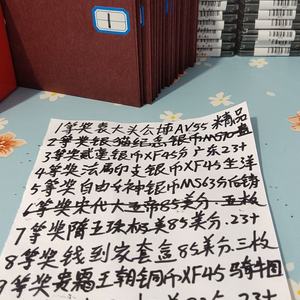 1
1等奖袁大头公博AU55精品
2等奖银猫纪念银币MS70盒
3等奖武莲银币XF45分广东23+
4等奖法属印支银币XF45坐洋
5等奖自由女神银币MS63分后铸
6等奖宋代大五帝85美分.五枚
7等奖隋五珠极美85美分.23+
8等奖钱到家套盒85美分三枚
9等奖贵霜王朝铜币XF45骑牛图
奖 美85美分.23+